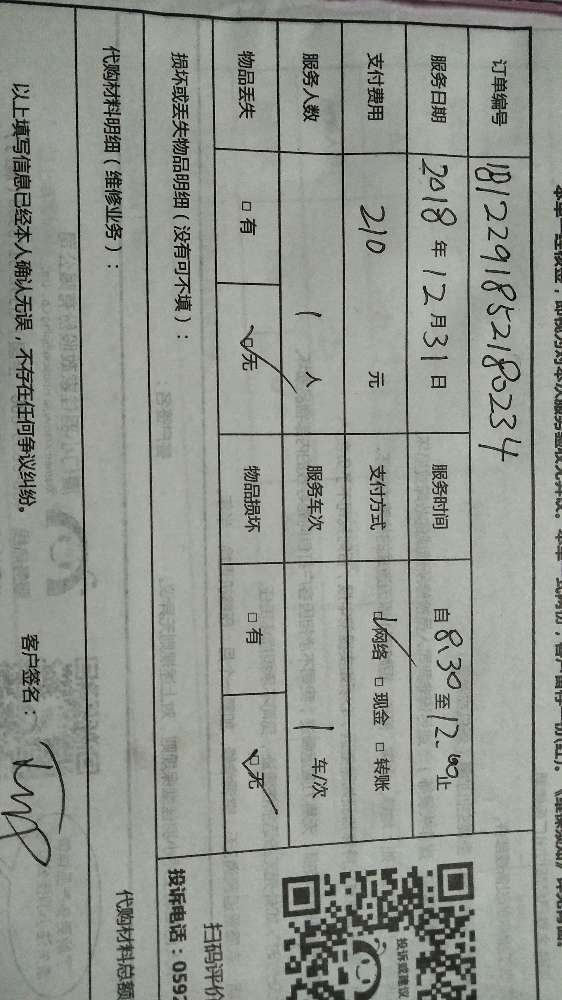 订单编号 1812291852180234
服务日期 2018年12月31日 服务时间 自8.30至12.00止
支付费用 210 元 支付方式 ☑网络 □现金 □转账
服务人数 1 人 服务车次 1 车/次
物品丢失 □有 ☑无 物品损坏 □有 ☑无
损坏或丢失物品明细（没有可不填）：
代购材料明细（维修业务）：
代购材料总额
以上填写信息已经本人确认无误，不存在任何争议纠纷。 客户签名：
投诉或建议
扫码评价
投诉电话：0592